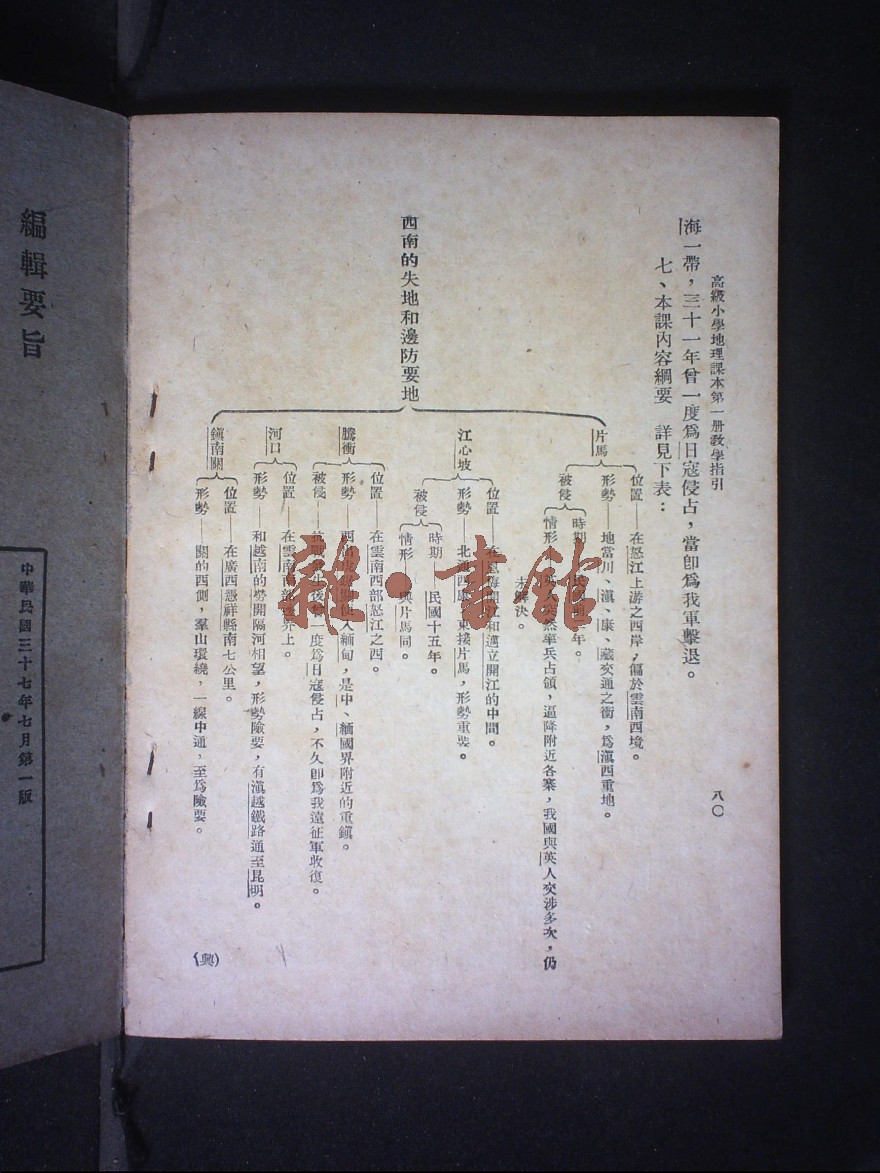 高級小學地理課本第一册教學指引
八〇
海一帶，三十一年曾一度爲日寇侵占，當卽爲我軍擊退。
七、本課內容綱要　詳見下表：
西南的失地和邊防要地
片馬
位置——在怒江上游之西岸，偏於雲南西境。
形勢——地當川、滇、康、藏交通之衝，爲滇西重地。
被侵
時期 年。
情形 率兵占領，逼降附近各寨，我國與英人交涉多次，仍
未解決。
江心坡
位置 江和邁立開江的中間。
形勢——北 東接片馬，形勢重要。
被侵
時期——民國十五年。
情形——與片馬同。
騰衝
位置——在雲南西部怒江之西。
形勢 入緬甸，是中、緬國界附近的重鎭。
被侵 後 一度爲日寇侵占，不久卽爲我遠征軍收復。
河口
位置——在雲南南部邊界上。
形勢——和越南的勞開隔河相望，形勢險要，有滇越鐵路通至昆明。
鎭南關
位置——在廣西憑祥縣南七公里。
形勢——關的西側，羣山環繞，一線中通，至爲險要。
(興)
編輯要旨
中華民國三十七年七月第一版
雜·書館